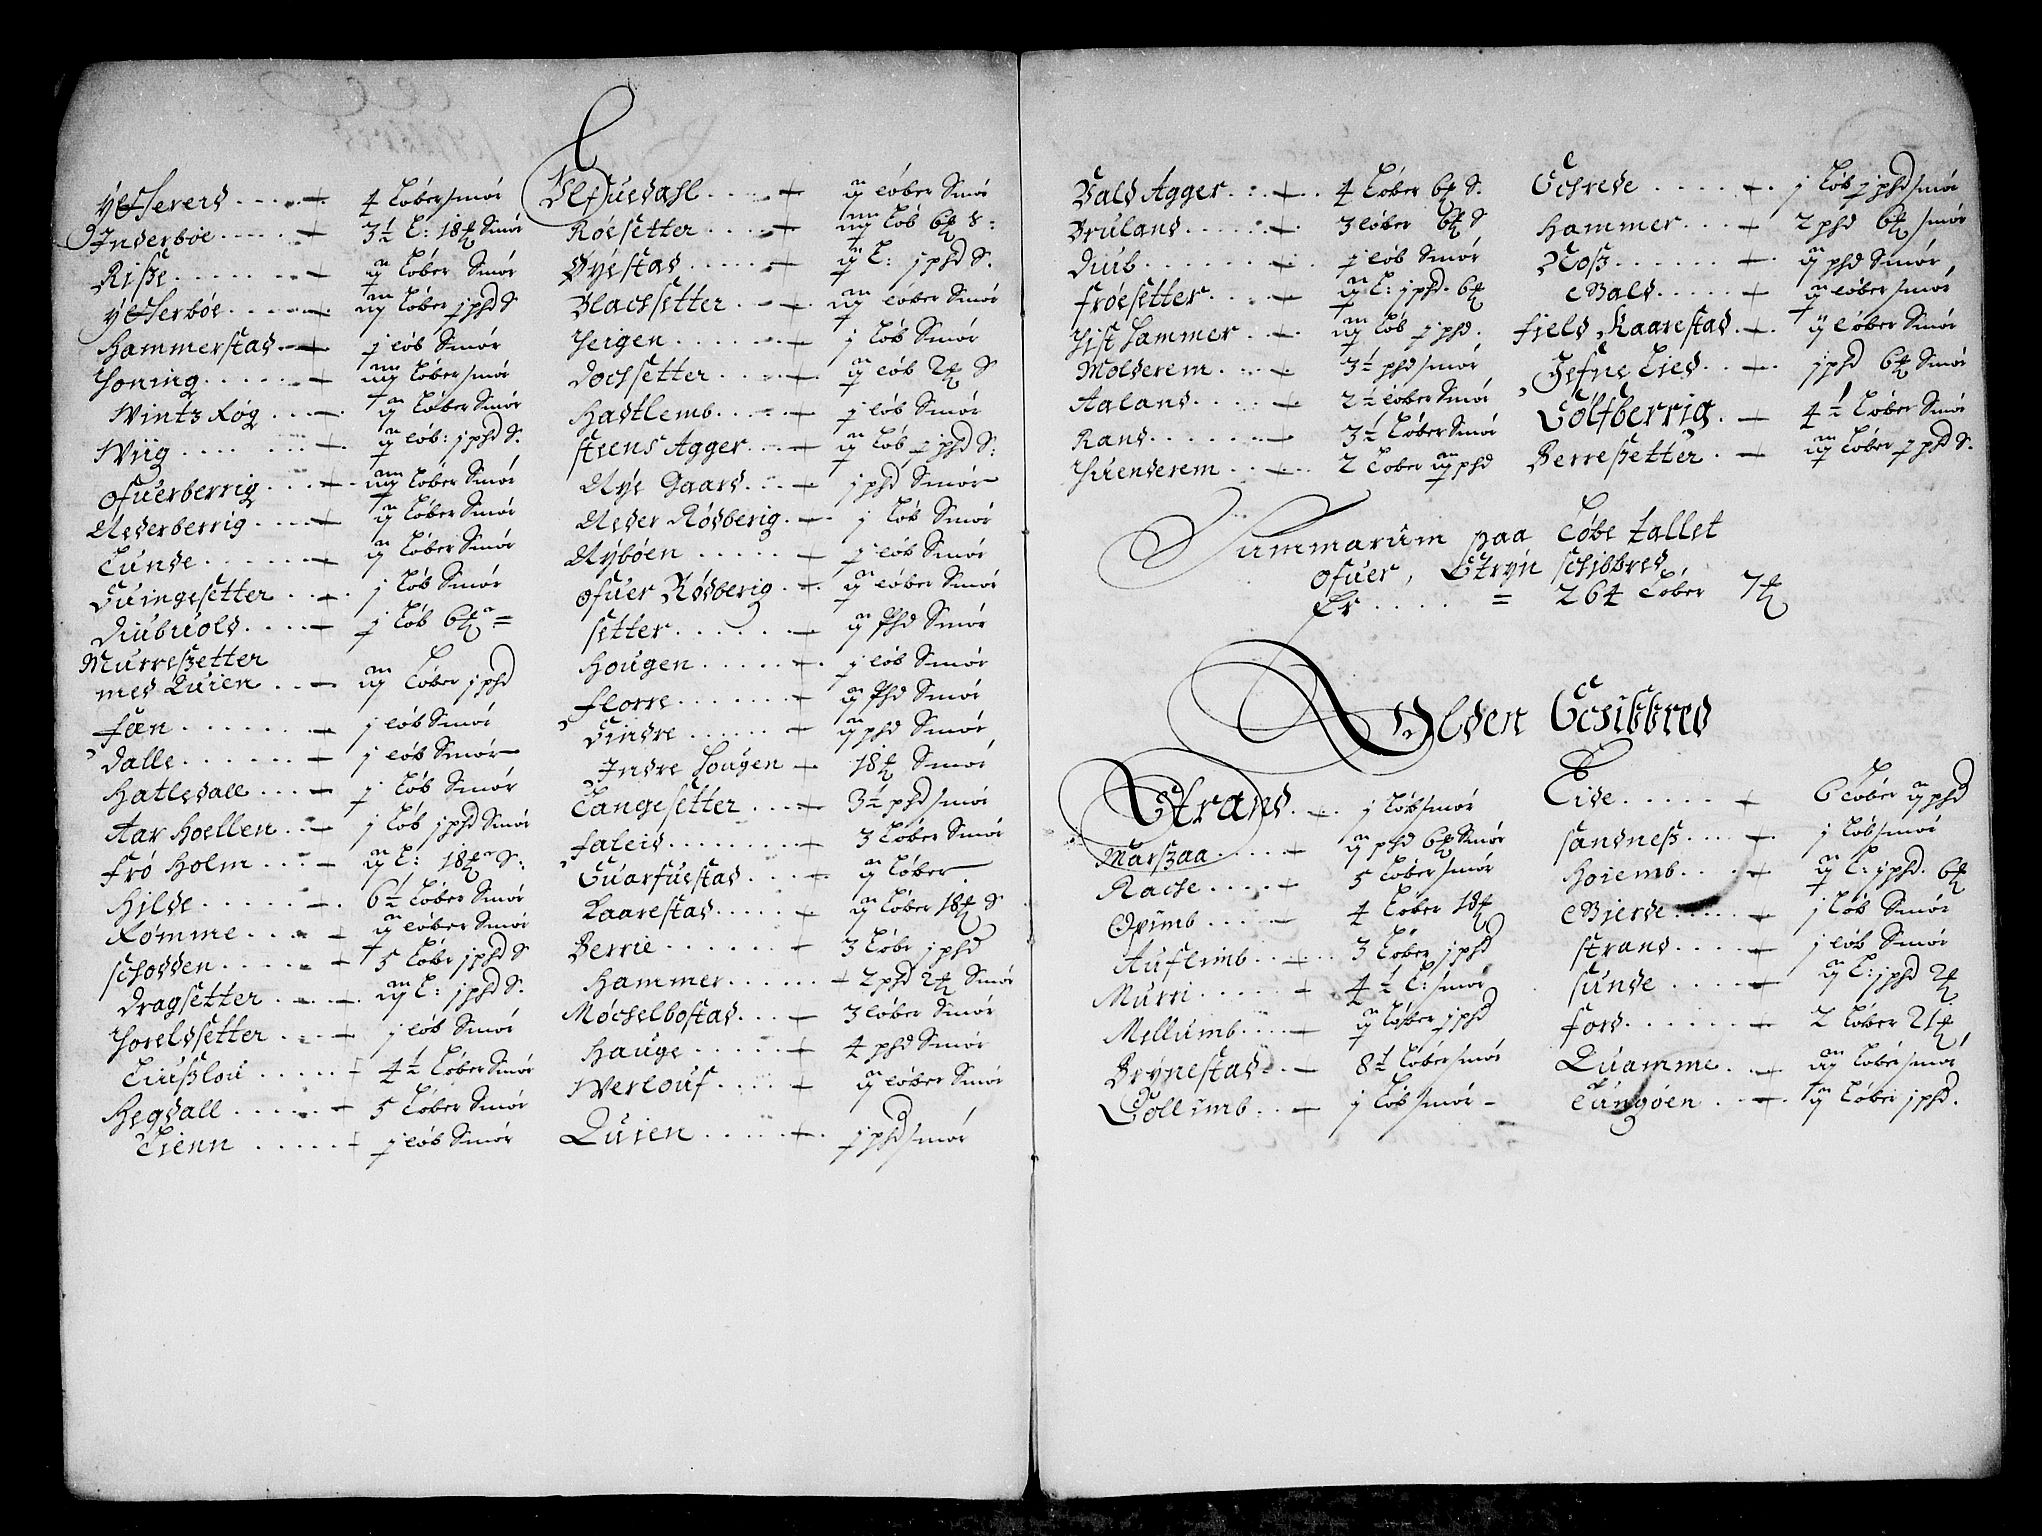 Ytterend ..... 4 Løber smør
Inderbøe ..... 3½ L: 18 ℔ Smør
Riße ..... ij Løber Smør
Ytterbøe ..... iij Løber j phd S
Hammerstad ..... j Løb Smør
Honing ..... iiij Løber smør
Wintz Røg ..... ij Løber Smør
Wiig ..... ij Løb: j phd S.
Ofuerberrig ..... iiij Løber Smør
Nederberrig ..... ij Løber Smør
Lunde ..... ij Løber Smør
Guingesetter ..... j Løb Smør
Diubuold ..... j Løb 6 ℔ =
Murreßetter
med Quien ..... iij Løber j phd
Fæn ..... j Løb Smør
Dalle ..... j Løb Smør
Hatledall ..... j Løb Smør
Aar Hoellen ..... j Løb j phd Smør
Frø Holm ..... ij L: 18 ℔ S:
Hilde ..... 6½ Løber Smør
Rømme ..... ij Løber Smør
Schodden ..... 5 Løber j phd S
Dragsetter ..... iij L: j phd S.
Horeldsetter ..... j Løb Smør
Liußlou ..... 4½ Løber Smør
Hegdall ..... 5 Løber Smør
Tienn ..... j Løb Smør
Ulfuedahl ..... ij Løber Smør
Røesetter ..... iiij Løb 6 ℔ S:
Øyestad ..... ij L: j phd S.
Blachsetter ..... iij Løber Smør
Heigen ..... j Løb Smør
Dochsetter ..... ij Løb 2 ℔ S
Hastlemb ..... j Løb Smør
Steens Agger ..... ij Løb j phd S:
Nye Gaard ..... j phd Smør
Neder Rødberig ..... j Løb Smør
Nybøen ..... j Løb Smør
Ofuer Rødberig ..... ij Løber Smør
Setter ..... ij Phd Smør
Hougen ..... j Løb Smør
Florre ..... ij Phd Smør
Sindre ..... ij phd Smør
Indre Hougen 18 ℔ Smør
Langesetter ..... 3½ phd smør
Faleid ..... 3 Løber Smør
Guarfuestad ..... ij Løber
Kaarestad ..... ij Løber 18 ℔ S
Berrie ..... 3 Løbr j phd
Hammer ..... 2 phd 2 ℔ Smør
Møchelbostad ..... 3 Løber Smør
Hauge ..... 4 phd Smør
Werlouf ..... ij Løber Smør
Quien ..... j phd smør
Bald Agger ..... 4 Løber 6 ℔ S.
Bruland ..... 3 Løber 6 ℔ S
Diub ..... j Løb Smør
Frøesetter ..... ij L: j phd. 6 ℔
Hist Hammer ..... iij Løb j phd.
Molderem ..... 3½ phd smør
Aaland ..... 2½ Løber Smør
Rand ..... 3½ Løber Smør
Huenderem ..... 2 Løber ij phd
Schrede ..... j Løb j phd smør
Hammer ..... 2 phd 6 ℔ smør
Noß ..... ij phd Smør
Bald ..... ij Løber smør
Field Kaarestad ..... ij Løber Smør
Jefne Lied ..... j phd 6 ℔ Smør
Løltberrig ..... 4½ Løber Smør
Berreßetter ..... iij Løber j phd S.
Summarum paa Løbe tallet
Ofuer, Stryn Schibbred
Er ..... = 264 Løber 7 ℔
Olden Schibbred
Strand ..... j Løb smør
Marßaa ..... ij phd 6 ℔ Smør
Rache ..... 5 Løber smør
Opimb ..... 4 Løber 18 ℔
Auflimb ..... 3 Løber j phd
Murri ..... 4½ L: smør
Mellumb ..... ij Løber j phd
Brynestad ..... 8½ Løber smør
Gollimb ..... j Løb smør
Eide ..... 6 Løber ij phd
Sandneß ..... j Løb smør
Hoiemb ..... ij L: j phd. 6 ℔
Bierde ..... j Løb Smør
Strand ..... j Løb Smør
Sunde ..... ij L: j phd 2 ℔
Ford ..... 2 Løber 21 ℔
Quamme ..... iij Løber smør
Lungøen ..... ij Løber j phd.